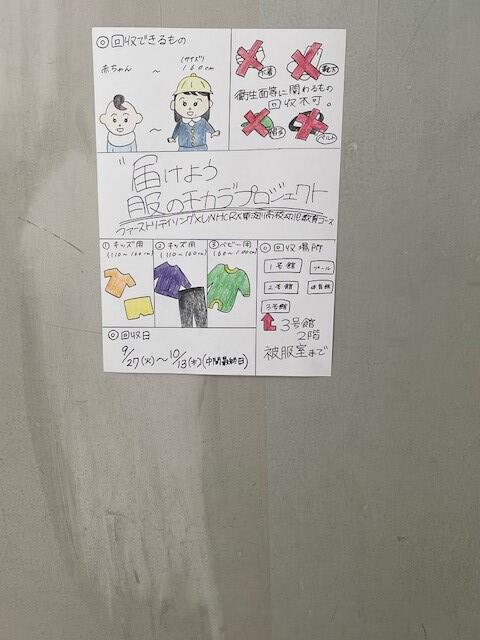 ◎回収できるもの
赤ちゃん ～ (サイズ)160cm
～
下着 靴下
衛生面等に関わるもの
回収不可。
帽子 ベルト
"届けよう
服のチカラプロジェクト
ファーストリテイリング×UNHCR×
幼児教育コース
①キッズ用
(110～160cm)
②キッズ用
(110～160cm)
③ベビー用
(60～100cm)
◎回収場所
1号館 プール
2号館 体育館
3号館
3号館
2階
被服室まで
◎回収日
9/27(火)～10/13(木)(中間最終日)